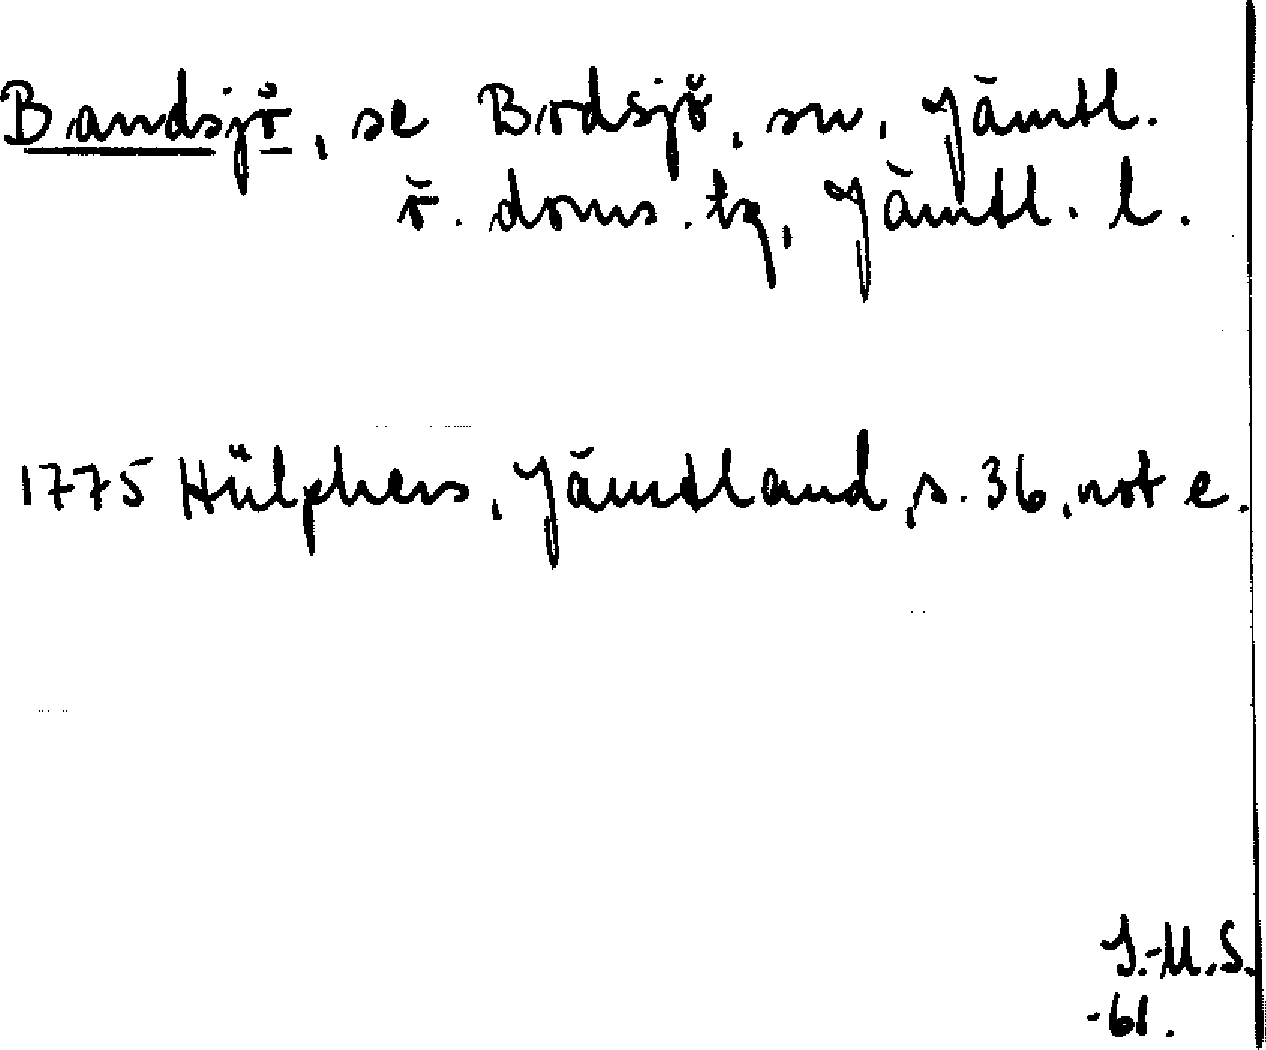 Bandsjö, se Bodsjö, sn, Jämtl.
ö. doms. tg, Jämtl. l.
1775 Hülphers, Jämtland, s. 36, not e.
I.-M.S.
-61.